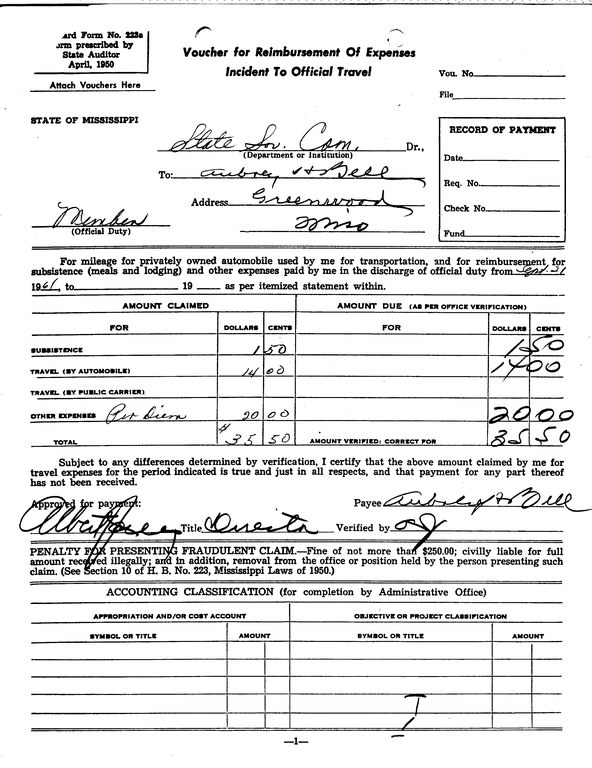 ard Form No. 223a
orm prescribed by
State Auditor
April, 1950
Attach Vouchers Here
Voucher for Reimbursement Of Expenses
Incident To Official Travel
Vou. No.
File
STATE OF MISSISSIPPI
State Sov. Com. Dr.,
(Department or Institution)
To: Aubrey H Bell
Address Greenwood
Miss
Member
(Official Duty)
RECORD OF PAYMENT
Date
Req. No.
Check No.
Fund
For mileage for privately owned automobile used by me for transportation, and for reimbursement for
subsistence (meals and lodging) and other expenses paid by me in the discharge of official duty from Sept. 21
1961, to 19 as per itemized statement within.
AMOUNT CLAIMED AMOUNT DUE (AS PER OFFICE VERIFICATION)
FOR DOLLARS CENTS FOR DOLLARS CENTS
SUBSISTENCE 1 50 1 50
TRAVEL (BY AUTOMOBILE) 14 00 14 00
TRAVEL (BY PUBLIC CARRIER)
OTHER EXPENSES Per Diem 20 00 20 00
TOTAL $ 35 50 AMOUNT VERIFIED: CORRECT FOR 35 50
Subject to any differences determined by verification, I certify that the above amount claimed by me for
travel expenses for the period indicated is true and just in all respects, and that payment for any part thereof
has not been received.
Approved for payment: Payee Aubrey H Bell
Title Director Verified by
PENALTY FOR PRESENTING FRAUDULENT CLAIM.—Fine of not more than $250.00; civilly liable for full
amount received illegally; and in addition, removal from the office or position held by the person presenting such
claim. (See Section 10 of H. B. No. 223, Mississippi Laws of 1950.)
ACCOUNTING CLASSIFICATION (for completion by Administrative Office)
APPROPRIATION AND/OR COST ACCOUNT OBJECTIVE OR PROJECT CLASSIFICATION
SYMBOL OR TITLE AMOUNT SYMBOL OR TITLE AMOUNT
—1—